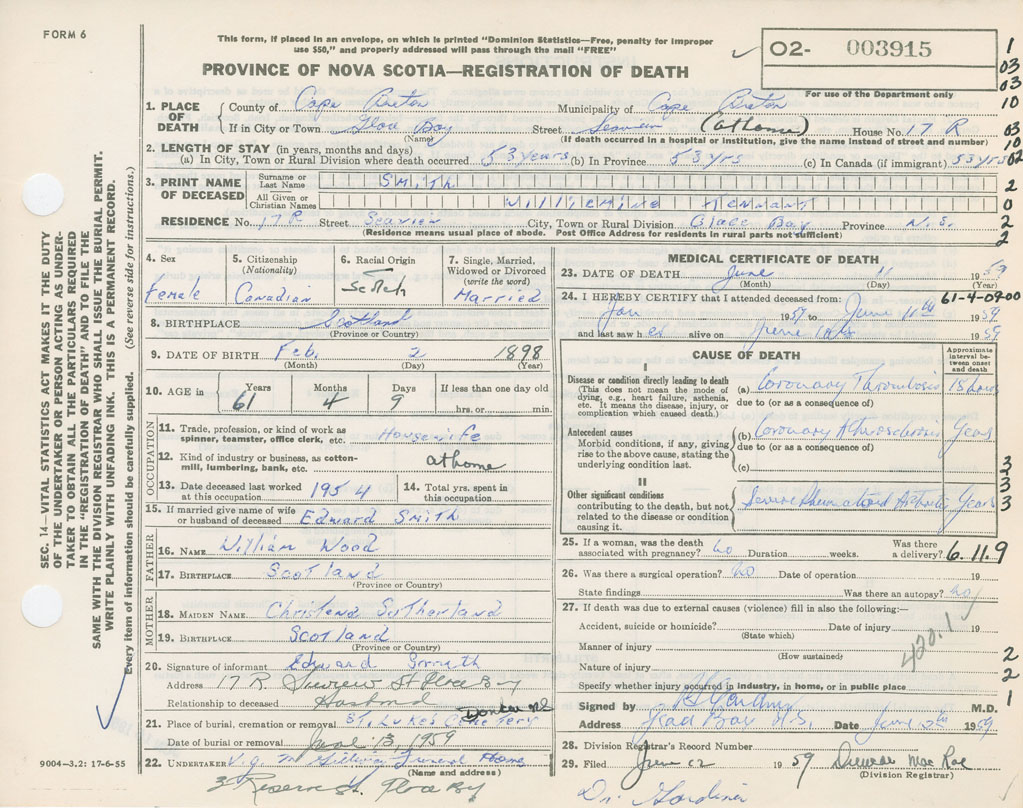 FORM 6
This form, if placed in an envelope, on which is printed "Dominion Statistics—Free, penalty for improper
use $50," and properly addressed will pass through the mail "FREE"
PROVINCE OF NOVA SCOTIA—REGISTRATION OF DEATH
O2- 003915
For use of the Department only
1
03
03
10
03
10
02
2
0
2
2
SEC. 14—VITAL STATISTICS ACT MAKES IT THE DUTY
OF THE UNDERTAKER OR PERSON ACTING AS UNDER-
TAKER TO OBTAIN ALL THE PARTICULARS REQUIRED
IN THE "REGISTRATION OF DEATH" AND TO FILE THE
SAME WITH THE DIVISION REGISTRAR WHO SHALL ISSUE THE BURIAL PERMIT.
WRITE PLAINLY WITH UNFADING INK. THIS IS A PERMANENT RECORD.
Every item of information should be carefully supplied. (See reverse side for instructions.)
1. PLACE OF DEATH
County of Cape Breton Municipality of Cape Breton
If in City or Town Glace Bay Street Seaview (at home) House No. 17 R
(Name) (If death occurred in a hospital or institution, give the name instead of street and number)
2. LENGTH OF STAY (in years, months and days)
(a) In City, Town or Rural Division where death occurred 53 years (b) In Province 53 yrs (c) In Canada (if immigrant) 53 yrs
3. PRINT NAME OF DECEASED
Surname or Last Name SMITH
All Given or Christian Names Williemina Tennant
RESIDENCE No. 17 R Street Seaview City, Town or Rural Division Glace Bay Province N.S.
(Residence means usual place of abode. Post Office Address for residents in rural parts not sufficient)
4. Sex Female
5. Citizenship (Nationality) Canadian
6. Racial Origin Scotch
7. Single, Married, Widowed or Divorced (write the word) Married
8. BIRTHPLACE Scotland
(Province or Country)
9. DATE OF BIRTH Feb. 2 1898
(Month) (Day) (Year)
10. AGE in Years 61 Months 4 Days 9 If less than one day old hrs. or min.
OCCUPATION
11. Trade, profession, or kind of work as spinner, teamster, office clerk, etc. Housewife
12. Kind of industry or business, as cotton-mill, lumbering, bank, etc. at home
13. Date deceased last worked at this occupation 1954
14. Total yrs. spent in this occupation
15. If married give name of wife or husband of deceased Edward Smith
FATHER
16. NAME William Wood
17. BIRTHPLACE Scotland
(Province or Country)
MOTHER
18. MAIDEN NAME Christena Sutherland
19. BIRTHPLACE Scotland
(Province or Country)
20. Signature of informant Edward Smith
Address 17 R Seaview St Glace Bay
Relationship to deceased Husband
21. Place of burial, cremation or removal St. Luke's Cemetery
Date of burial or removal June 13, 1959
22. UNDERTAKER Funeral Home
(Name and address)
3 Reserve St. Glace Bay
9004—3.2: 17-6-55
MEDICAL CERTIFICATE OF DEATH
23. DATE OF DEATH June 11 1959
(Month) (Day) (Year)
24. I HEREBY CERTIFY that I attended deceased from: 61-4-09-00
Jan 1959 to June 11th 1959
and last saw her alive on June 1959
CAUSE OF DEATH
Approximate interval between onset and death
I
Disease or condition directly leading to death
(This does not mean the mode of dying, e.g., heart failure, asthenia, etc. It means the disease, injury, or complication which caused death.)
(a) Coronary Thrombosis 18 hours
due to (or as a consequence of)
Antecedent causes
Morbid conditions, if any, giving rise to the above cause, stating the underlying condition last.
(b) Coronary Atherosclerosis Years
due to (or as a consequence of)
(c)
II
Other significant conditions
contributing to the death, but not related to the disease or condition causing it.
Severe Rheumatoid Arthritis Years
3
3
3
25. If a woman, was the death associated with pregnancy? No Duration weeks. Was there a delivery? 6.11.9
26. Was there a surgical operation? No Date of operation 19
State findings Was there an autopsy? No
27. If death was due to external causes (violence) fill in also the following:—
Accident, suicide or homicide? Date of injury 19
(State which)
420.1
Manner of injury
(How sustained)
Nature of injury
Specify whether injury occurred in industry, in home, or in public place
2
2
1
Signed by M.D.
Address Glace Bay N.S. Date June 1959
28. Division Registrar's Record Number
29. Filed June 12 1959 Mac Rae
(Division Registrar)
Dr. Gardiner